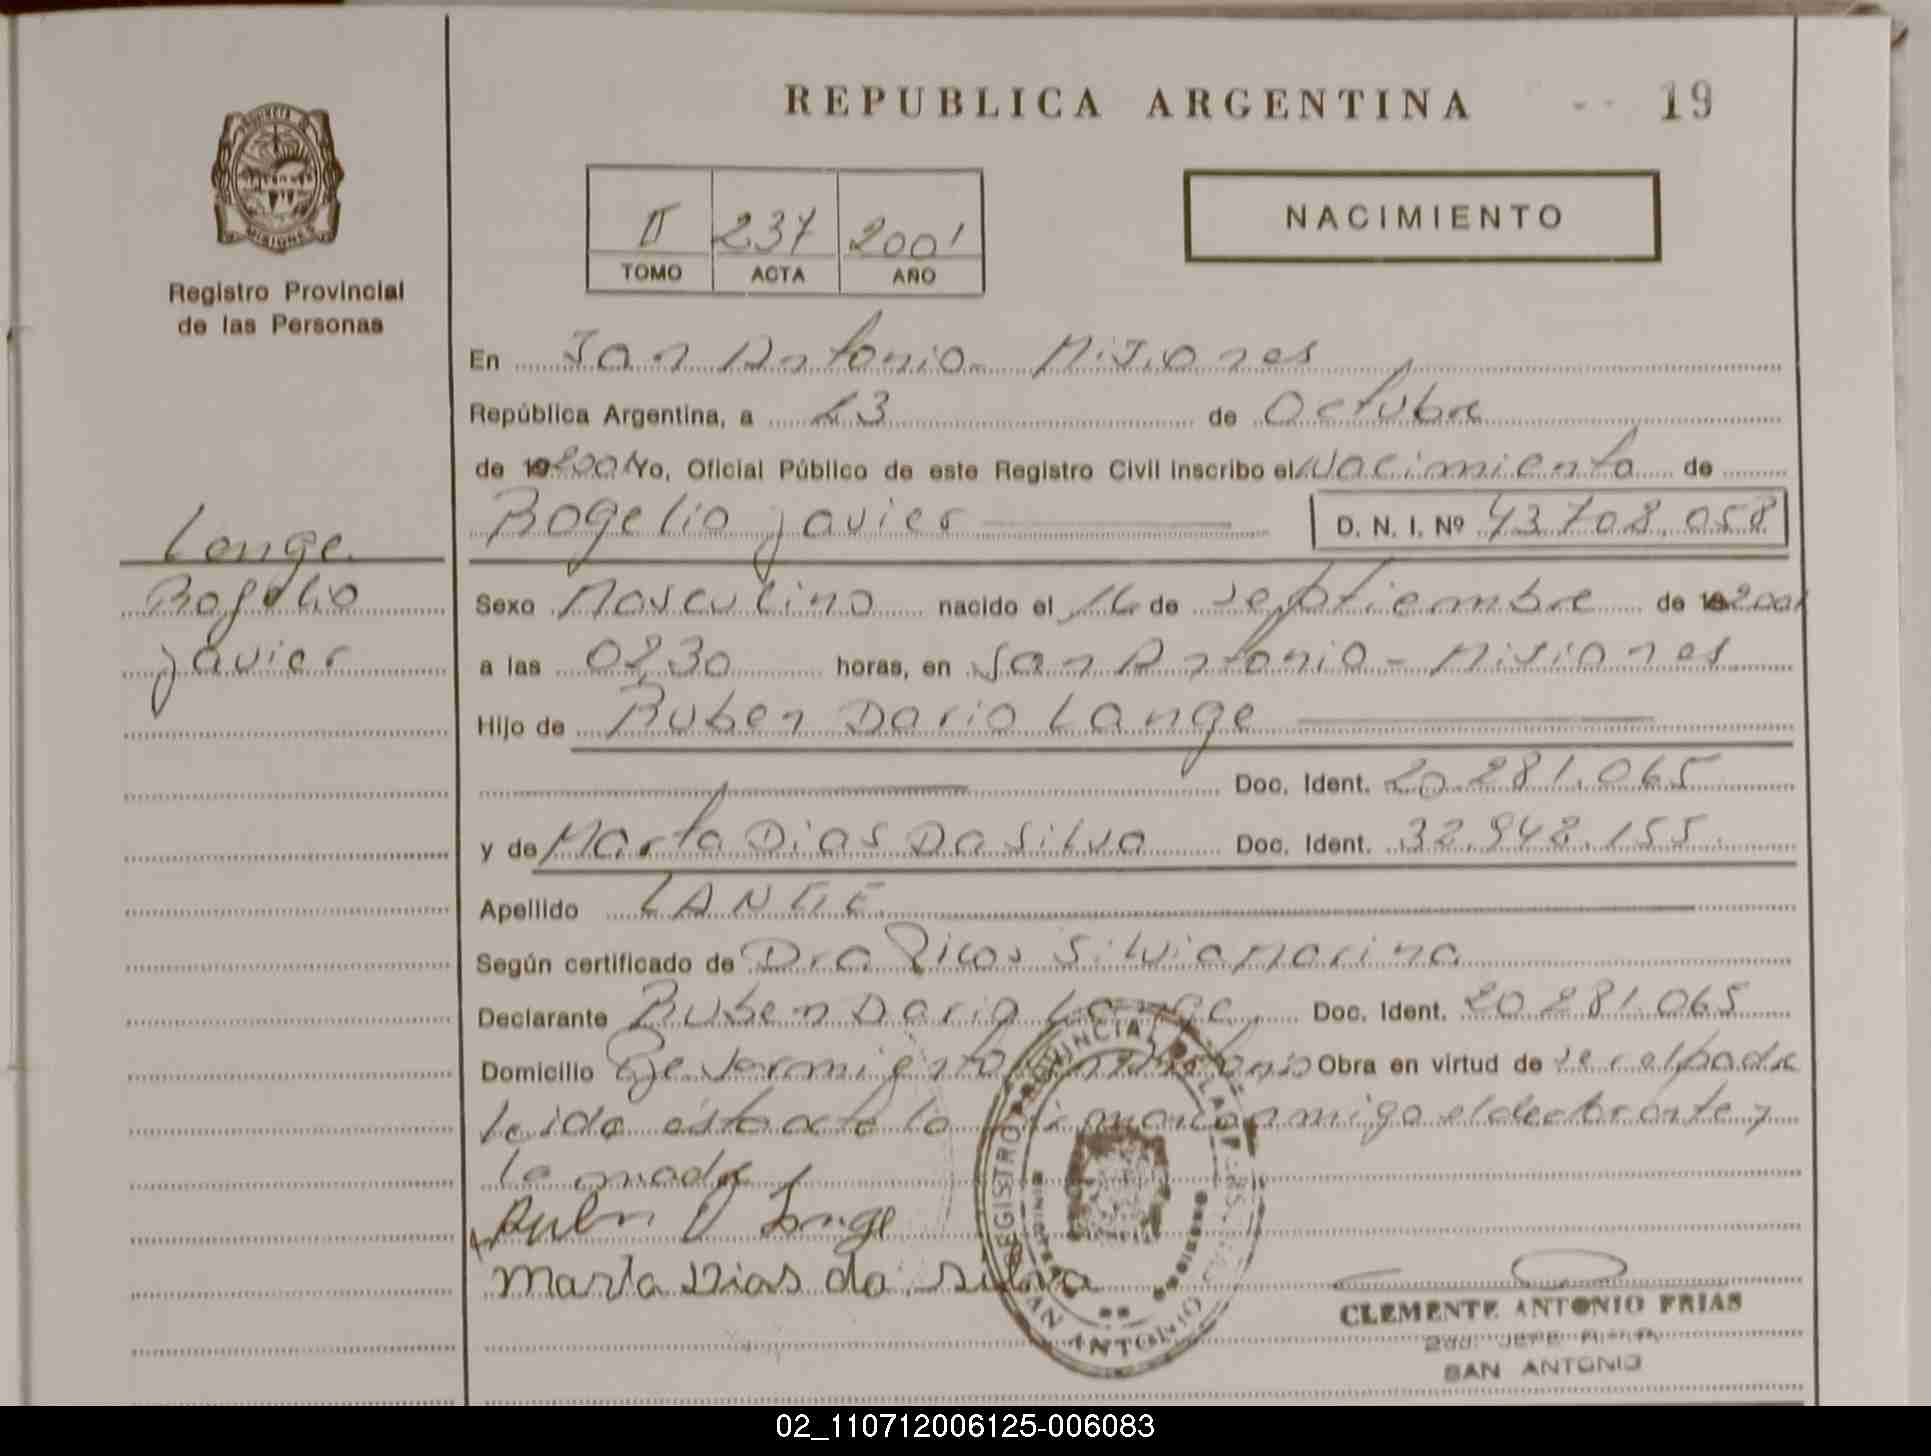 REPUBLICA ARGENTINA
19
PROVINCIA DE MISIONES
Registro Provincial
de las Personas
II 237 2001
TOMO ACTA AÑO
NACIMIENTO
En San Antonio - Misiones
República Argentina, a 23 de Octubre
de 19 2001 Yo, Oficial Público de este Registro Civil inscribo el Nacimiento de
Rogelio Javier D. N. I. Nº 43.708.058
Lange
Rogelio
Javier
Sexo Masculino nacido el 16 de Septiembre de 19 2001
a las 0830 horas, en San Antonio - Misiones
Hijo de Ruben Dario Lange
Doc. Ident. 20.281.065
y de Marta Dias Da Silva Doc. Ident. 32.948.155
Apellido LANGE
Según certificado de Dra Silvia Marina
Declarante Ruben Dario Lange Doc. Ident. 20.281.065
Domicilio Obra en virtud de ser el padre
leida esta acta la firman conmigo el declarante y
la madre
Ruben D Lange
Marta Dias da Silva
REGISTRO PROVINCIAL DE LAS PERSONAS
SAN ANTONIO
MISIONES
CLEMENTE ANTONIO FRIAS
SAN ANTONIO
02_110712006125-006083